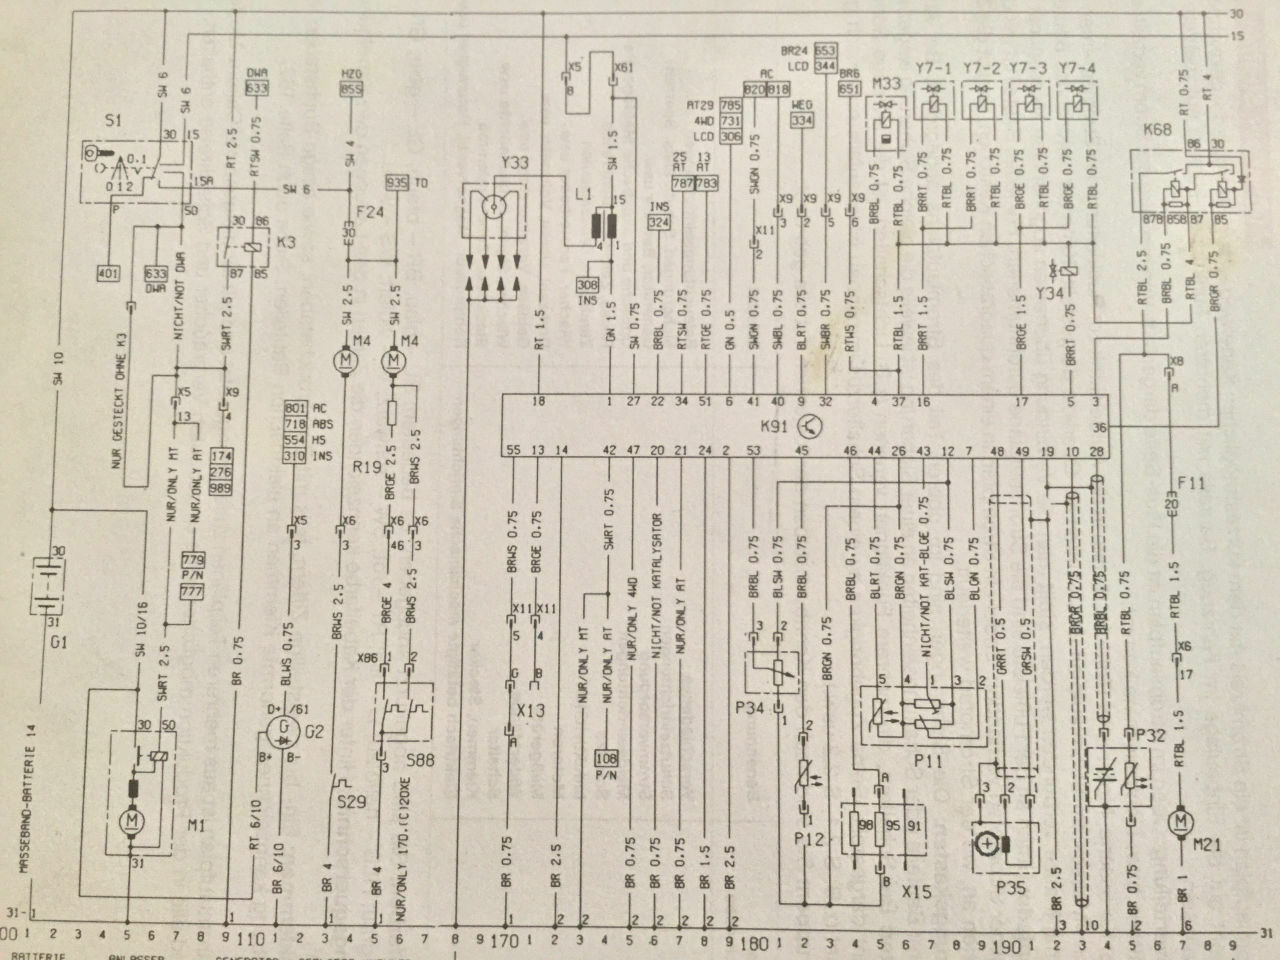 30
15
SW 6
SW 6
DWA
633
HZG
855
X5
8
X61
BR24 653
LCD 344
AC
820 818
BR6
651
M33
Y7-1
Y7-2
Y7-3
Y7-4
RT 0.75
RT 4
S1
30 15
RT 2.5
RTSW 0.75
SW 4
AT29 785
4WD 731
LCD 306
WEG
334
K68
86 30
0.1
0 1 2
15A
P
50
SW 6
935 TD
Y33
L1
15
4 1
SW 1.5
25
AT
787
13
AT
783
INS
324
SWGN 0.75
X9
3
X9
2
X9
5
X9
6
X11
2
BRBL 0.75
RTBL 0.75
BRRT 0.75
RTBL 0.75
BRRT 0.75
RTBL 0.75
BRGE 0.75
RTBL 0.75
BRGE 0.75
RTBL 0.75
87B 85B 87 85
F24
30
30 86
K3
87 85
401
633
DWA
308
INS
Y34
NICHT/NOT DWA
SWRT 2.5
SW 2.5
SW 2.5
RT 1.5
GN 1.5
SW 0.75
BRBL 0.75
RTSW 0.75
RTGE 0.75
GN 0.5
SWGN 0.75
SWBL 0.75
BLRT 0.75
SWBR 0.75
RTWS 0.75
RTBL 1.5
BRRT 1.5
BRGE 1.5
BRRT 0.75
RTBL 2.5
BRBL 0.75
RTBL 4
BRGR 0.75
SW 10
NUR GESTECKT OHNE K3
M4
M
M4
M
X8
A
X5
13
X9
4
18 1 27 22 34 51 6 41 40 9 32 4 37 16 17 5 3
K91
36
801 AC
718 ABS
554 HS
310 INS
174
276
989
R19
BRGE 2.5
BRWS 2.5
55 13 14 42 47 20 21 24 2 53 45 46 44 26 43 12 7 48 49 19 10 28
NUR/ONLY MT
NUR/ONLY AT
F11
20
X5
3
X6
3
X6
46
X6
3
30
31
G1
779
P/N
777
SW 10/16
SWRT 2.5
BR 0.75
BLWS 0.75
BRWS 2.5
BRGE 4
BRWS 2.5
BRWS 0.75
BRGE 0.75
SWRT 0.75
X11
5
X11
4
NUR/ONLY MT
NUR/ONLY AT
NUR/ONLY 4WD
NICHT/NOT KATALYSATOR
NUR/ONLY AT
BRBL 0.75
BLSW 0.75
BRBL 0.75
BRGN 0.75
BRBL 0.75
BLRT 0.75
BRGN 0.75
NICHT/NOT KAT-BLGE 0.75
BLSW 0.75
BLGN 0.75
GRRT 0.5
GRSW 0.5
BRGR 0.75
BRBL 0.75
RTBL 0.75
RTBL 1.5
X6
17
X86 1 2
G
B
X13
A
3 2
P34
1
5 4 1 3 2
P11
D+ /61
G
G2
B+ B-
S88
3
108
P/N
2
P12
1
P32
RTBL 1.5
30 50
M1
M
31
S29
A
98
95
91
B
X15
3 2 1
P35
M
M21
MASSEBAND-BATTERIE 14
RT 6/10
BR 6/10
BR 4
BR 4
NUR/ONLY 17D.(C)20XE
BR 0.75
BR 2.5
BR 0.75
BR 0.75
BR 0.75
BR 1.5
BR 2.5
BR 2.5
BR 0.75
BR 1
31
1
5
1
1
1
1
1
2
2
2
2
2
2
3
10
4
2
6
31
00 1 2 3 4 5 6 7 8 9 110 1 2 3 4 5 6 7 8 9 170 1 2 3 4 5 6 7 8 9 180 1 2 3 4 5 6 7 8 9 190 1 2 3 4 5 6 7 8 9
BATTERIE
ANLASSER
GENERATOR